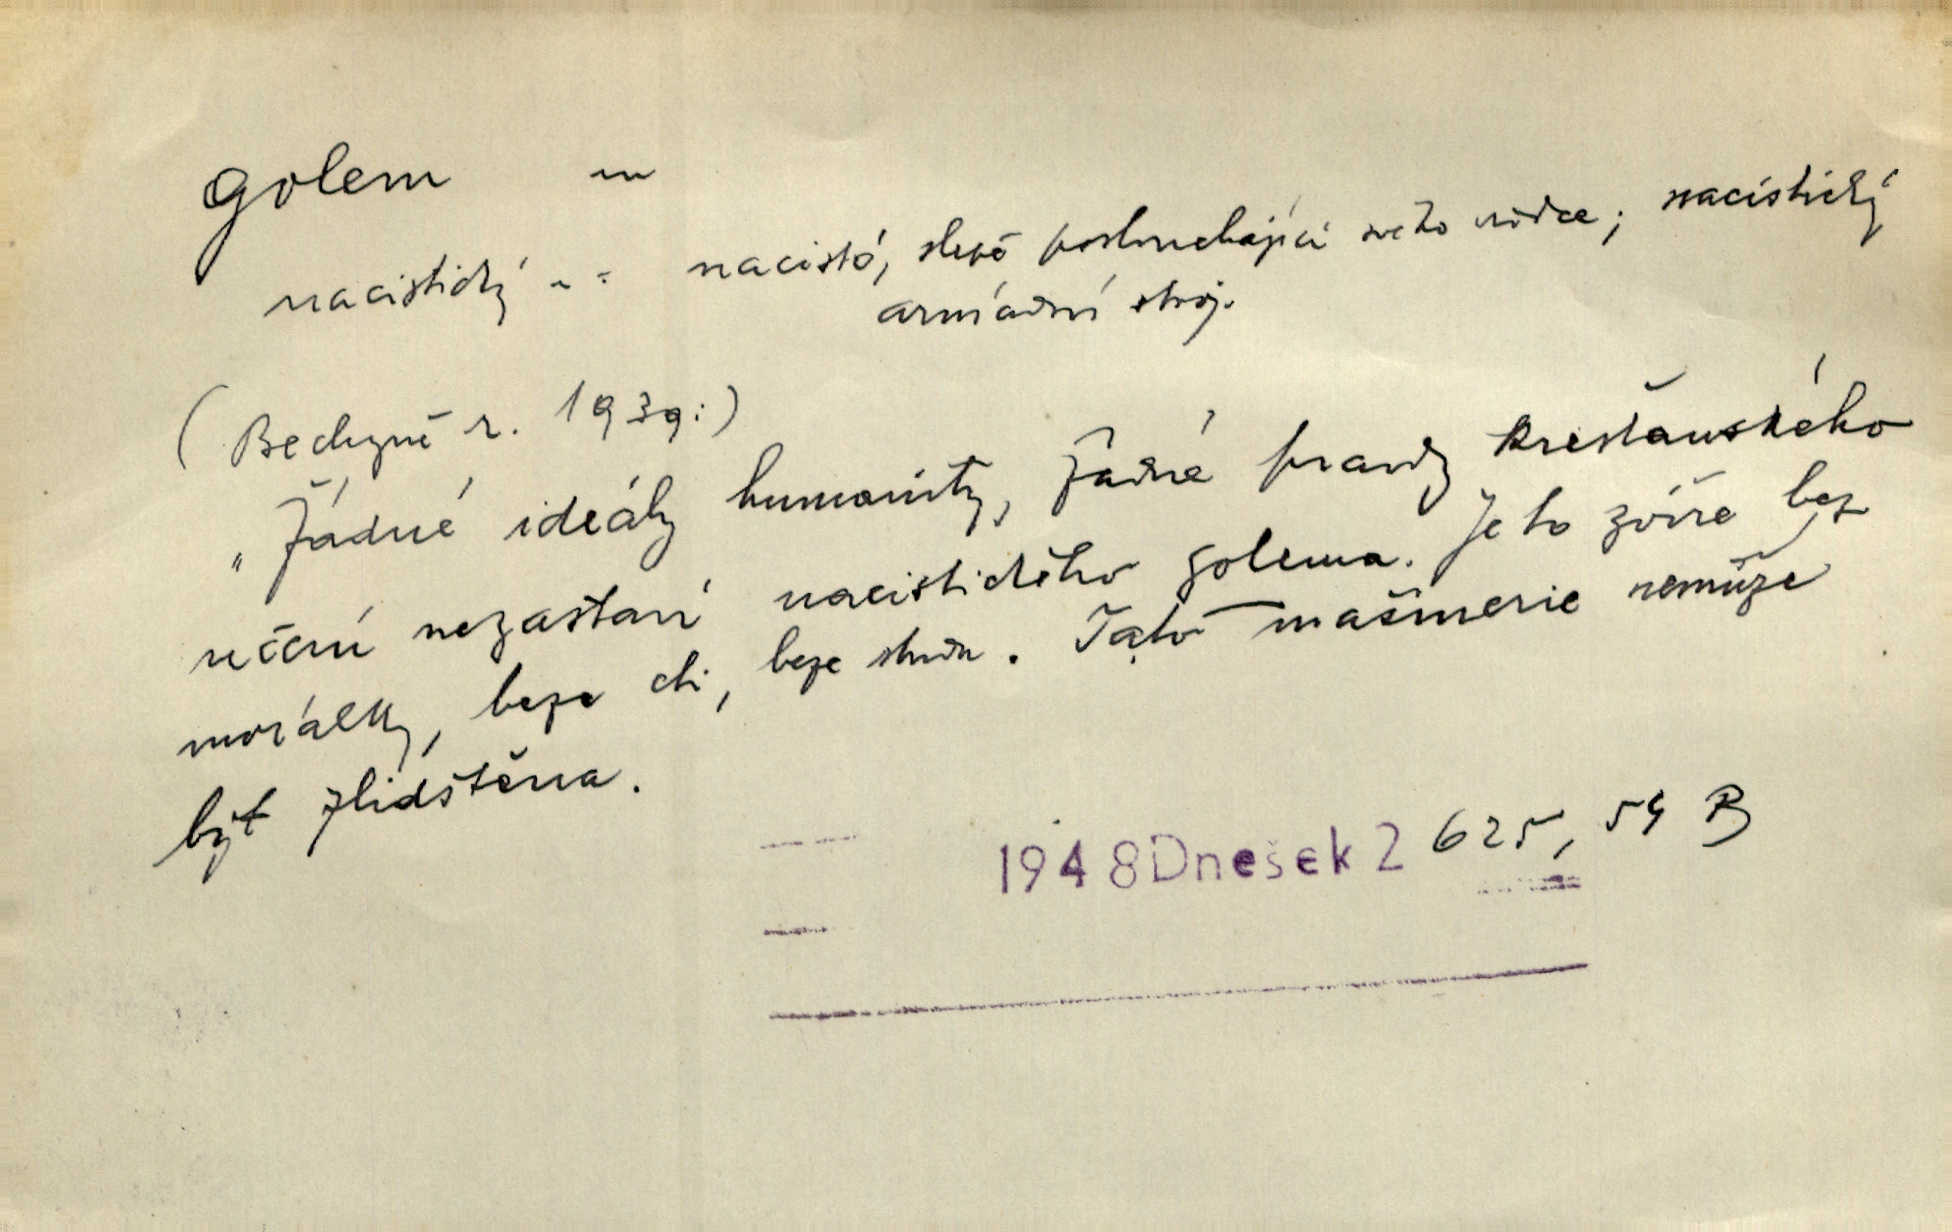 golem m
nacistický ~ = nacisté, slepě poslouchající svého vůdce; nacistický
armádní stroj.
(Bechyně r. 1939:)
„Žádné ideály humanity, žádné pravdy křesťanského
učení nezastaví nacistického golema. Je to zvíře bez
morálky, beze cti, beze studu. Tato mašinerie nemůže
být zlidštěna.
1948 Dnešek 2 625, 54 B